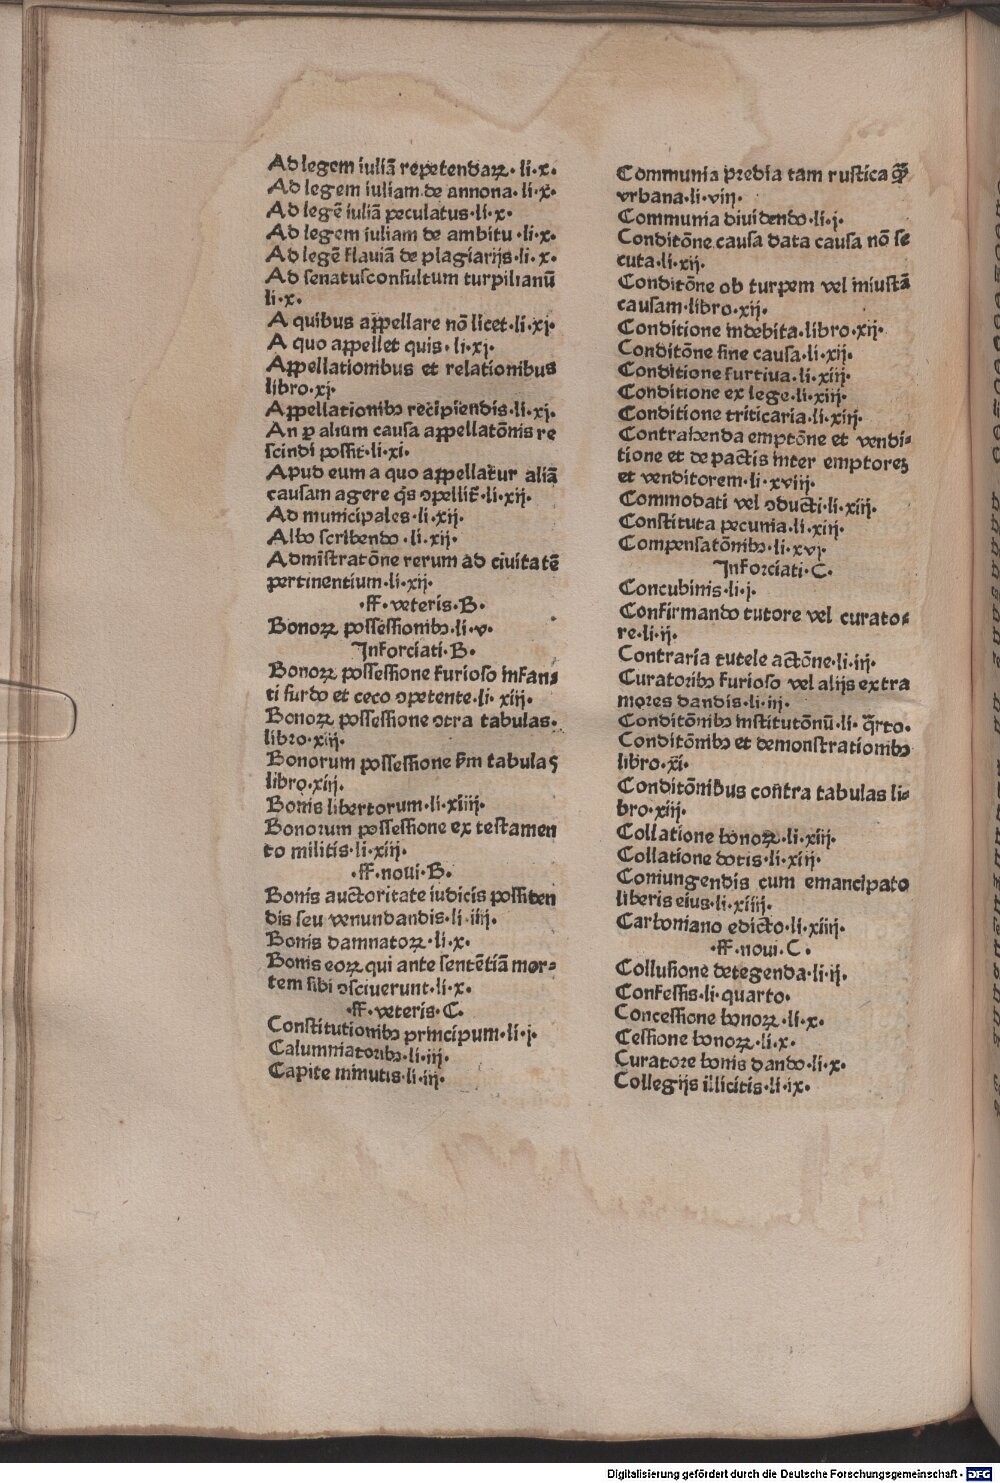 Ad legem iuliā repetendaꝝ· li·x·
Ad legem iuliam de annona· li·x·
Ad legē iuliā peculatus·li·x·
Ad legem iuliam de ambitu·li·x·
Ad legē flauiā de plagiarijs·li·x·
Ad senatusconsultum turpilianū
li·x·
A quibus appellare nō licet·li·xj·
A quo appellet quis· li·xj·
Appellationibus et relationibus
libro·xj·
Appellationibꝰ recipiendis·li·xj·
An ꝑ alium causa appellatōnis re
scindi possit·li·xi·
Apud eum a quo appellat̄ur aliā
causam agere q̄s ↄpellit̄·li·xij·
Ad municipales·li·xij·
Albo scribendo·li·xij·
Admistratōne rerum ad ciuitatē
pertinentium·li·xij·
·ff·veteris·B·
Bonoꝝ possessionibꝰ·li·v·
Inforciati·B·
Bonoꝝ possessione furioso infan⸗
ti surdo et ceco ↄpetente·li·xiij·
Bonoꝝ possessione ↄtra tabulas·
libro·xiij·
Bonorum possessione s̄m tabulas
libro·xiij·
Bonis libertorum·li·xiiij·
Bonorum possessione ex testamen
to militis·li·xiij·
·ff·noui·B·
Bonis auctoritate iudicis possiden
dis seu venundandis·li·iiij·
Bonis damnatoꝝ·li·x·
Bonis eoꝝ qui ante sentētiā mor⸗
tem sibi ↄsciuerunt·li·x·
·ff·veteris·C·
Constitutionibꝰ principum·li·j·
Calumniatoribꝰ·li·iij·
Capite minutis·li·iij·
Communia predia tam rustica q̄ꝫ
vrbana·li·viij·
Communia diuidendo·li·j·
Conditōne causa data causa nō se
cuta·li·xij·
Conditōne ob turpem vel iniustā
causam·libro·xij·
Conditione indebita·libro·xij·
Conditōne sine causa·li·xij·
Conditione furtiua·li·xiij·
Conditione ex lege·li·xiij·
Conditione triticaria·li·xiij·
Contrahenda emptōne et vendi⸗
tione et de pactis inter emptoreꝫ
et venditorem·li·xviij·
Commodati vel ↄducti·li·xiij·
Constituta pecunia·li·xiij·
Compensatōnibꝰ·li·xvj·
Inforciati·C·
Concubinis·li·j·
Confirmando tutore vel curato⸗
re·li·ij·
Contraria tutele actōne·li·iij·
Curatoribꝰ furioso vel alijs extra
mores dandis·li·iij·
Conditōnibꝰ institutōnū·li·q̄rto·
Conditōnibꝰ et demonstrationibꝰ
libro·xi·
Conditōnibus contra tabulas li⸗
bro·xiij·
Collatione bonoꝝ·li·xiij·
Collatione dotis·li·xiij·
Coniungendis cum emancipato
liberis eius·li·xiiij·
Carboniano edicto·li·xiiij·
·ff·noui·C·
Collusione detegenda·li·ij·
Confessis·li·quarto·
Concessione bonoꝝ·li·x·
Cessione bonoꝝ·li·x·
Curatore bonis dando·li·x·
Collegijs illicitis·li·ix·
Digitalisierung gefördert durch die Deutsche Forschungsgemeinschaft - DFG